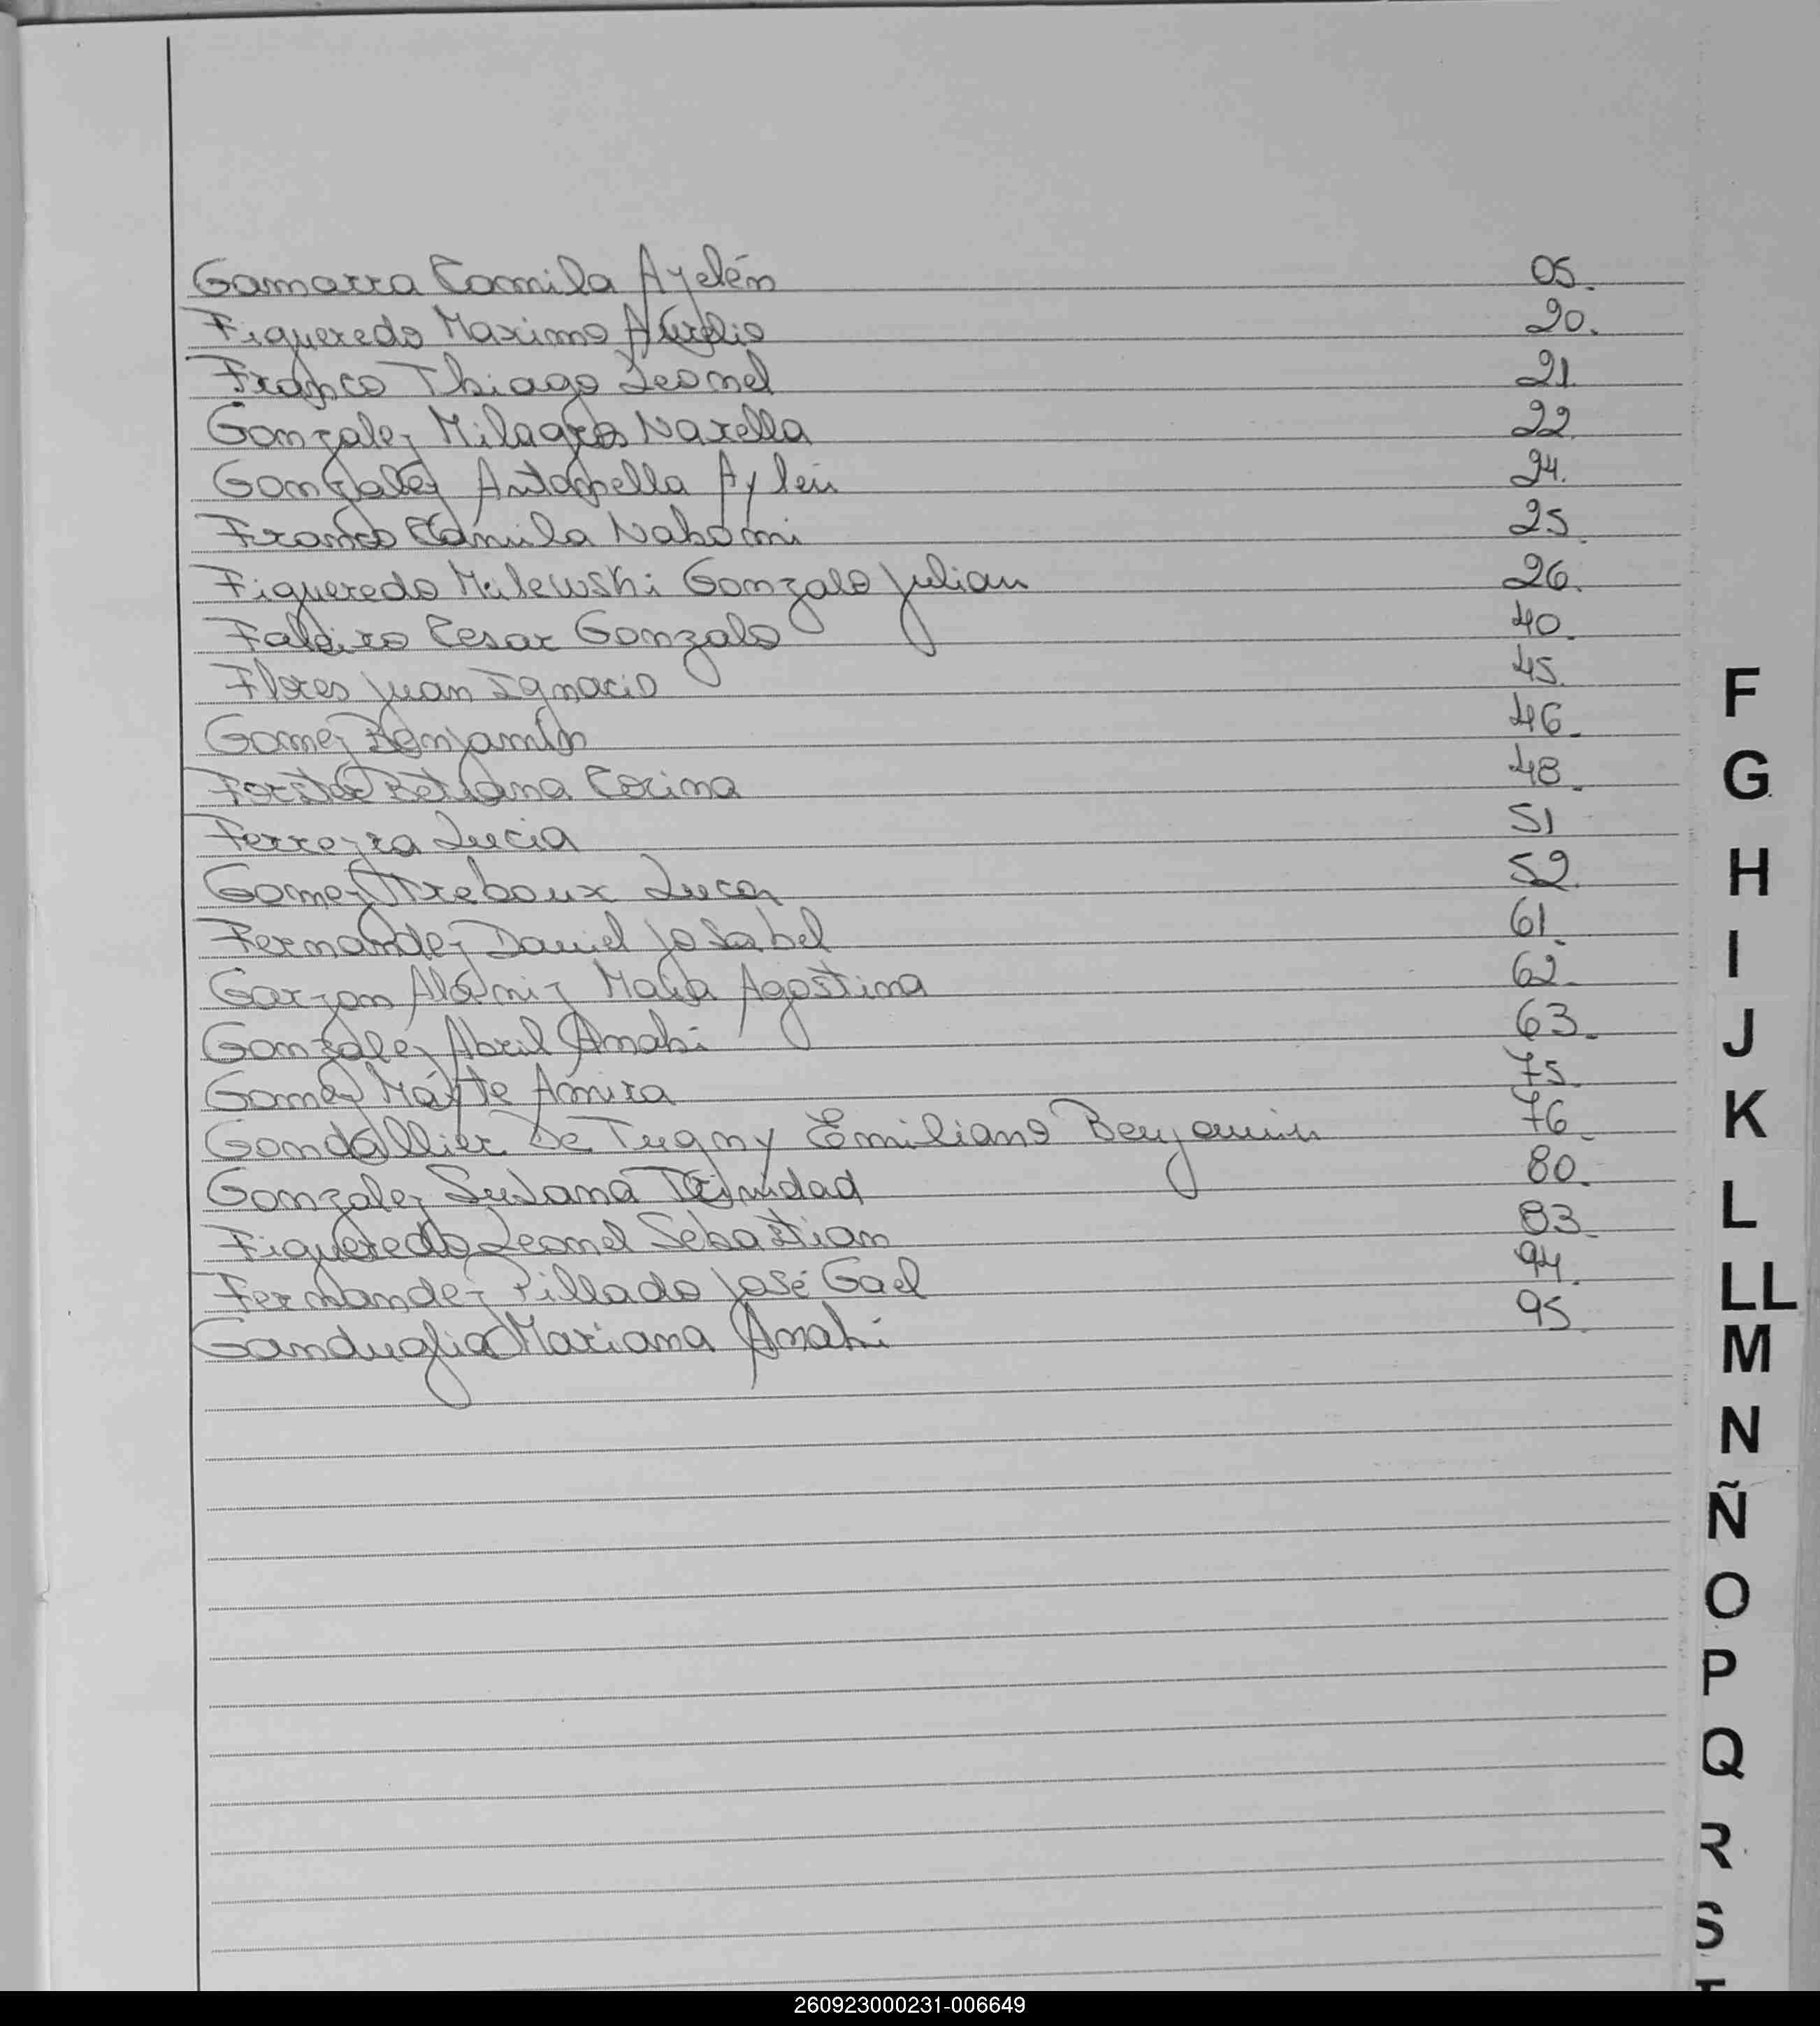 Gamarra Camila Ayelén 05.
Figueredo Maximo Aurelio 20.
Franco Thiago Leonel 21.
Gonzalez Milagros Narella 22
Gonzalez Antonella Aylen 24.
Franco Camila Nahomi 25.
Figueredo Milewski Gonzalo Julian 26.
Faleiro Cesar Gonzalo 40.
Flores Juan Ignacio 45.
Gomez Benjamin 46.
Forster Betiana Corina 48.
Ferreyra Lucia 51
Gomez Treboux Luca 52.
Fernandez Daniel Josabel 61.
Garzon Alamiz Maria Agostina 62.
Gonzalez Abril Anahi 63.
Gomez Mayte Amira 75.
Gondallier De Tugny Emiliano Benjamin 76.
Gonzalez Susana Trinidad 80.
Figueredo Leonel Sebastian 83.
Fernandez Pillado José Gael 94.
Ganduglia Mariana Anahi 95.
F
G
H
I
J
K
L
LL
M
N
Ñ
O
P
Q
R
S
260923000231-006649